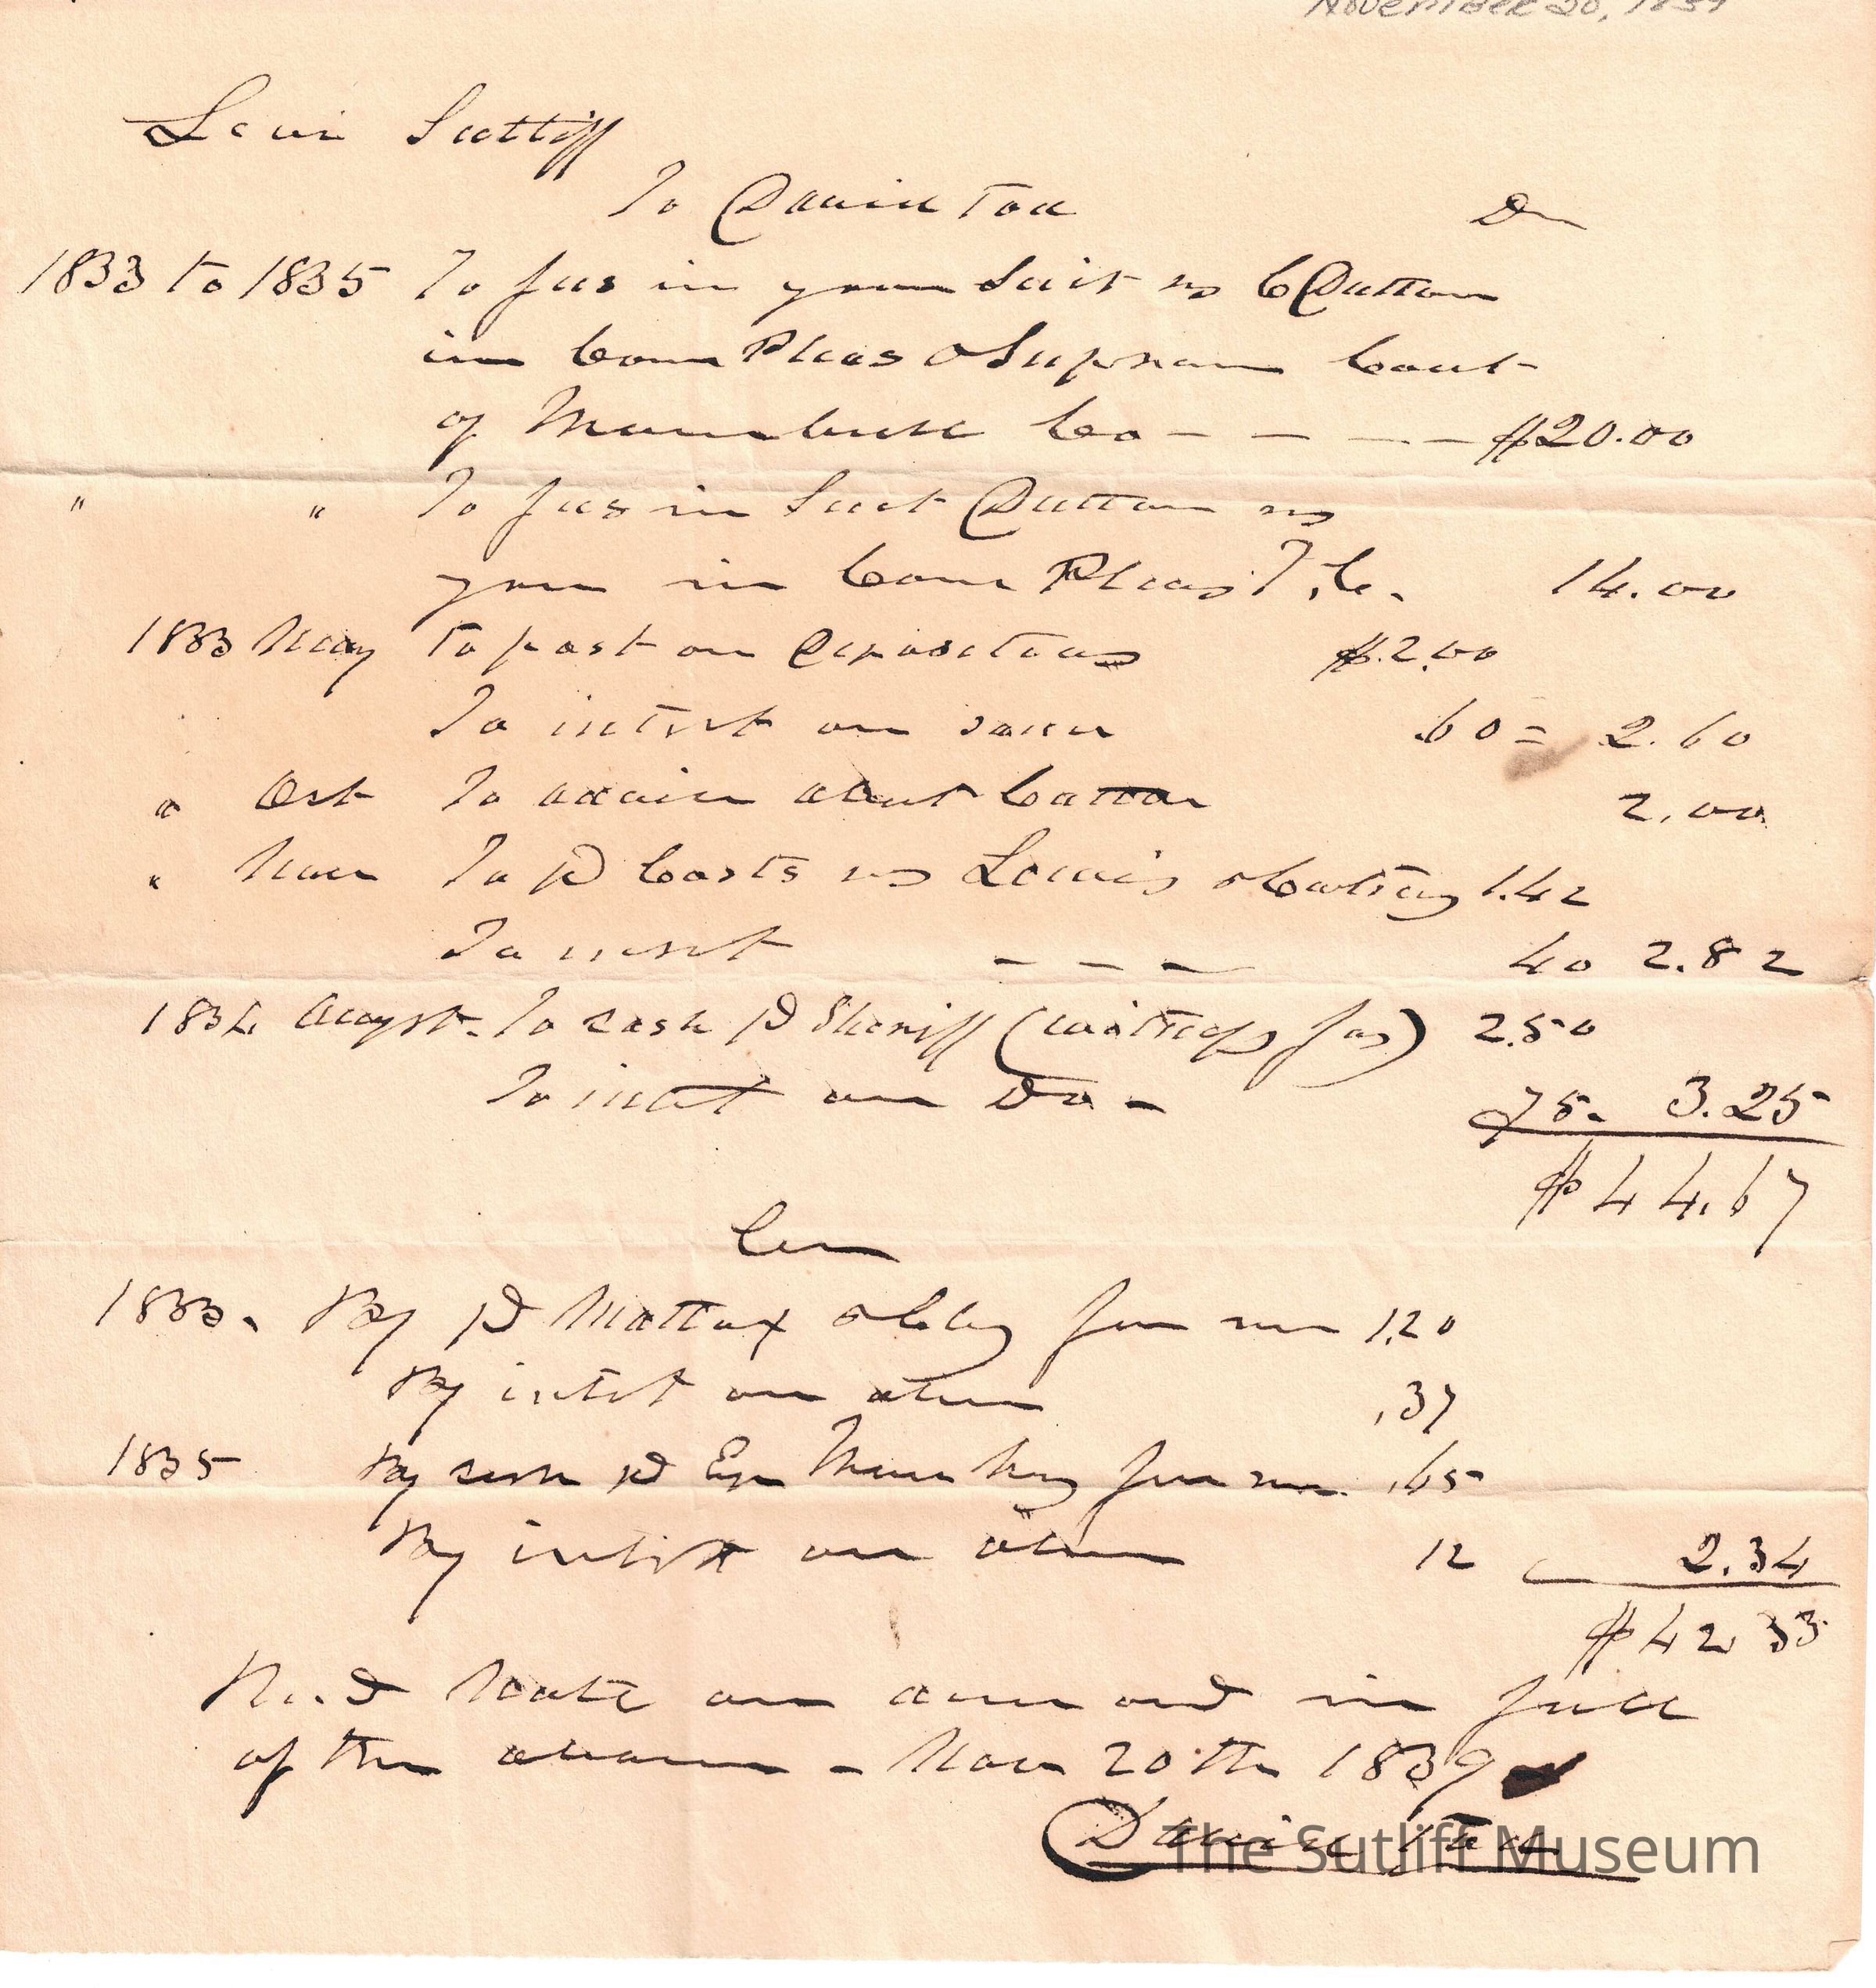 November 20, 1839
Levi Suttliff
To David Tod Dr
1833 to 1835 To fees in your Suit vs C Dutton
in Com Pleas & Suprem Court
of Trumbull Co - - - - $20.00
" " To fees in Suit Dutton vs
you in Com Pleas T.C. 14.00
1833 May To post on Depositions $2.00
To intrst on same .60 = 2.60
" Oct To advice about 2.00
" Nov To pd Costs vs Lewis & 1.42
To - - - 40 2.82
1834 Augst. To cash pd Sheriff (witness fees) 2.50
To intst on Do - 75. 3.25
$44.67
Cr
1833. By pd Mattox & for me 1.20
By intrst on above .37
1835 By cash pd for me .65
By intrst on above 12 2.34
$42 33
Rec.d Note on demand in full
of the above - Nov 20th 1839
David Tod
The Sutliff Museum